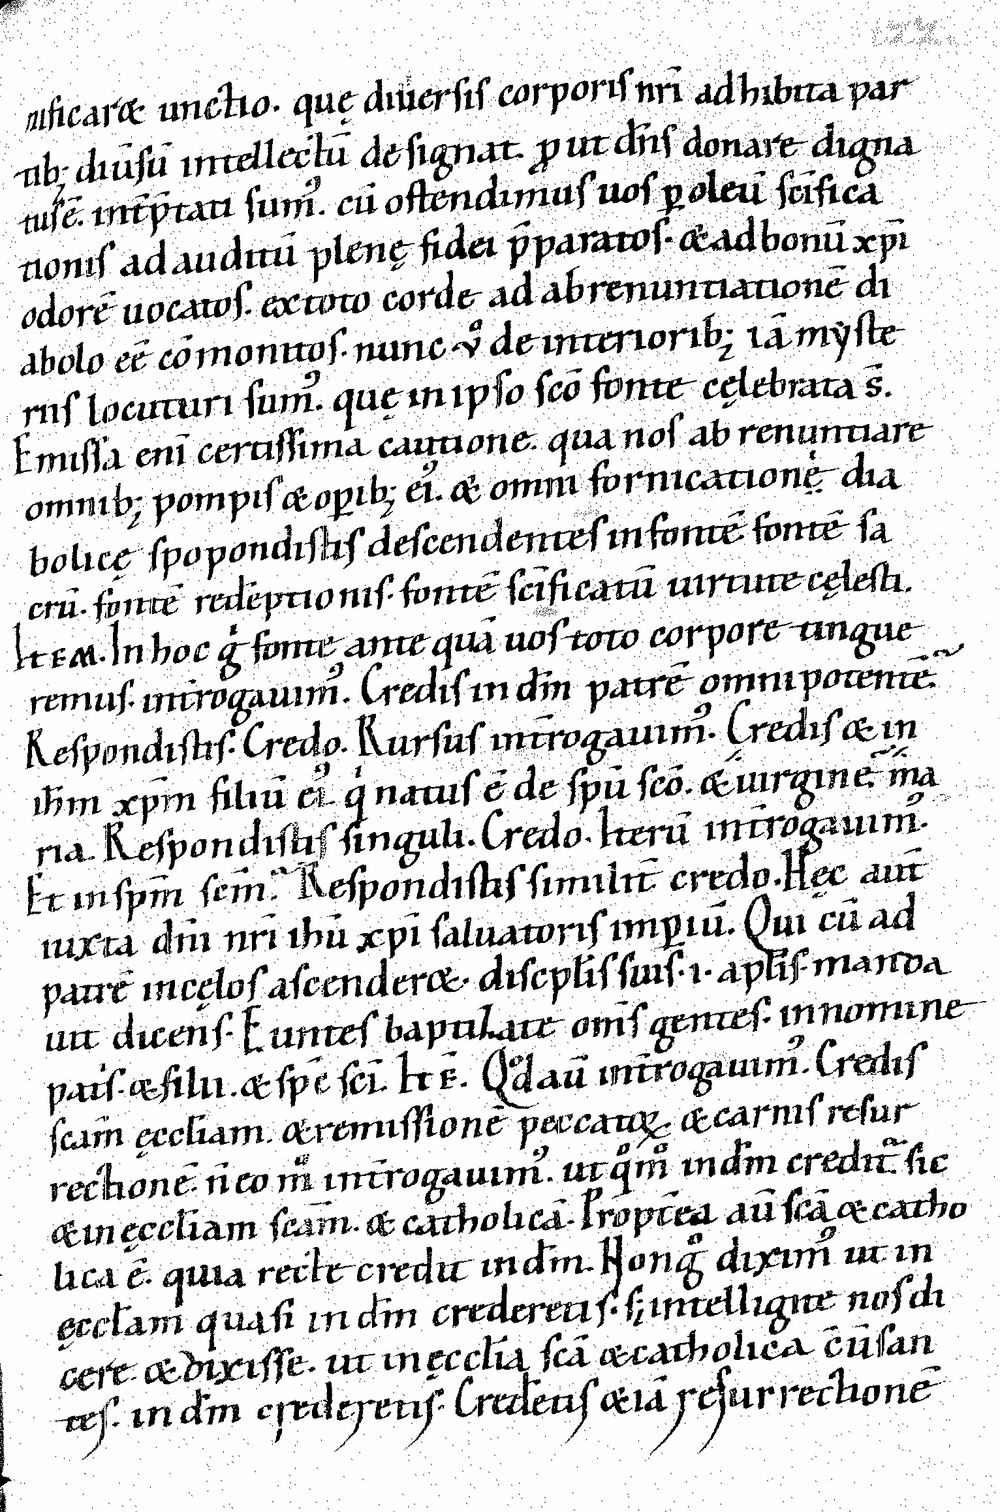 nificaret unctio. quę diuersis corporis nr̄i adhibita par
tib; diūsū intellectū designat. ꝓut dn̄s donare digna
tus ē. int̄p̄tati sumꝰ. cū ostendimus uos ꝑ oleū sc̄ifica
tionis ad auditū plenę fidei p̄paratos. & ad bonū xp̄i
odorē uocatos. ex toto corde ad abrenuntiationē di
abolo eē cōmonitos. nunc ůo de interiorib; iā mẏste
riis locuturi sumꝰ. quę in ipso sc̄o fonte cęlebrata s̄.
Emissa enī certissima cautione. qua nos abrenuntiare
omnib; pompis & oꝑib; eiꝰ. & omni fornicationę dia
bolicę spopondistis descendentes in fontē fontē sa
crū. fontē redēptionis. fontē sc̄ificatū uirtute cęlesti.
ITEM. In hoc g̊ fonte ante quā uos toto corpore tingue
remus. int̄rogauimꝰ. Credis in dm̄ patrē omnipotentē.
Respondistis. Credo. Rursus int̄rogauimꝰ. Credis & in
ihm̄ xpm̄ filiū eiꝰ qͥ natus ē de spū sc̄o. & uirginē ma
ria. Respondistis singuli. Credo. Iterū int̄rogauimꝰ.
Et in spm̄ scm̄. Respondistis similit̄ credo. Hęc aut̄
iuxta dn̄i nr̄i ihū xp̄i saluatoris imꝑiū. Qui cū ad
patrē in cęlos ascenderet. discipl̄is suis. i. apl̄is. manda
uit dicens. Euntes baptizate om̄s gentes. in nomine
pat̄s. & filii. & sp̄s sc̄i. ITĒ. Qd̊ aū int̄rogauimꝰ. Credis
scam̄ ęccl̄iam. & remissionē peccatoꝝ. & carnis resur
rectionē. n̄ eo mͦ int̄rogauimꝰ. ut qͦmͦ in dm̄ credit̄ sic
& in ęccl̄iam scam̄. & catholicā. Propt̄ea aū scā & catho
lica ē. quia recte credit in dm̄. Non g̊ diximꝰ ut in
ęccl̄am quasi in dm̄ crederetis. s; intelligite nos di
cere & dixisse. ut in ęccl̄ia scā & catholica cū̄ san
tes. in dm̄ crederetis. Credetis & iā resurrectionē